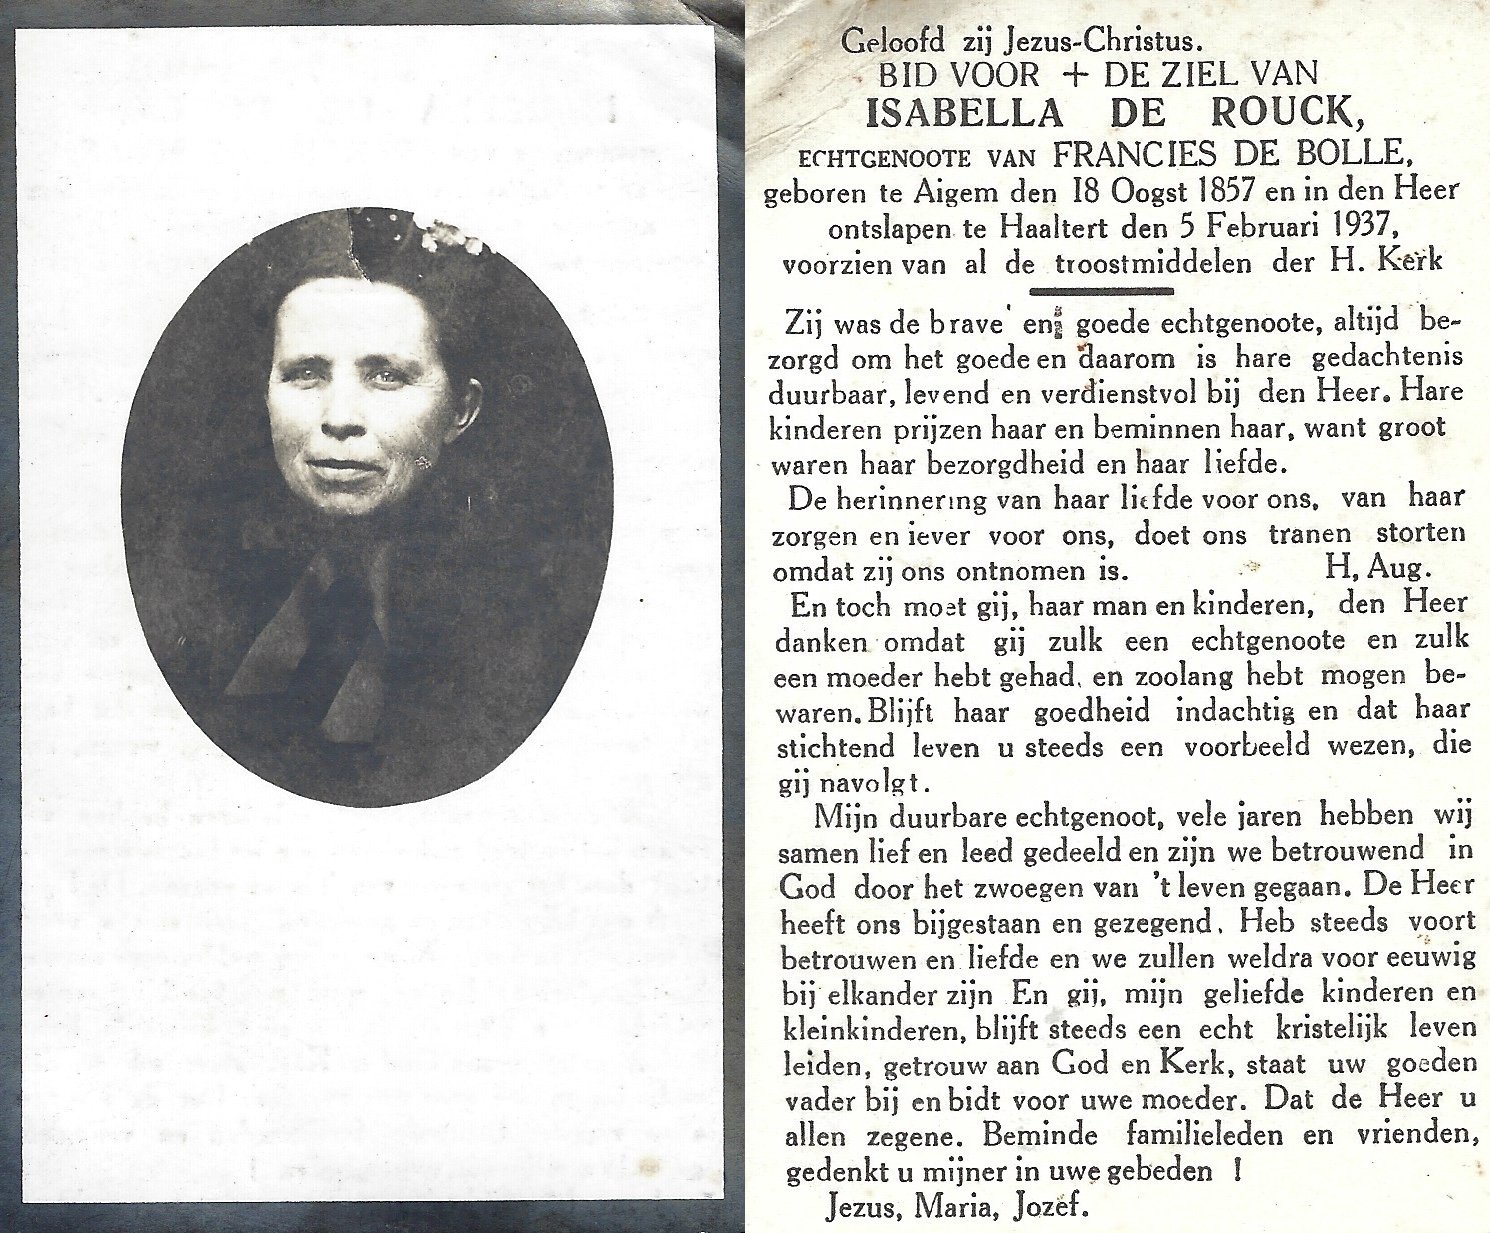 Geloofd zij Jezus-Christus.
BID VOOR + DE ZIEL VAN
ISABELLA DE ROUCK,
ECHTGENOOTE VAN FRANCIES DE BOLLE,
geboren te Aigem den 18 Oogst 1857 en in den Heer
ontslapen te Haaltert den 5 Februari 1937,
voorzien van al de troostmiddelen der H. Kerk
Zij was de brave en goede echtgenoote, altijd be-
zorgd om het goede en daarom is hare gedachtenis
duurbaar, levend en verdienstvol bij den Heer. Hare
kinderen prijzen haar en beminnen haar, want groot
waren haar bezorgdheid en haar liefde.
De herinnering van haar liefde voor ons, van haar
zorgen en iever voor ons, doet ons tranen storten
omdat zij ons ontnomen is. H, Aug.
En toch moet gij, haar man en kinderen, den Heer
danken omdat gij zulk een echtgenoote en zulk
een moeder hebt gehad, en zoolang hebt mogen be-
waren. Blijft haar goedheid indachtig en dat haar
stichtend leven u steeds een voorbeeld wezen, die
gij navolgt.
Mijn duurbare echtgenoot, vele jaren hebben wij
samen lief en leed gedeeld en zijn we betrouwend in
God door het zwoegen van 't leven gegaan. De Heer
heeft ons bijgestaan en gezegend. Heb steeds voort
betrouwen en liefde en we zullen weldra voor eeuwig
bij elkander zijn En gij, mijn geliefde kinderen en
kleinkinderen, blijft steeds een echt kristelijk leven
leiden, getrouw aan God en Kerk, staat uw goeden
vader bij en bidt voor uwe moeder. Dat de Heer u
allen zegene. Beminde familieleden en vrienden,
gedenkt u mijner in uwe gebeden !
Jezus, Maria, Jozef.